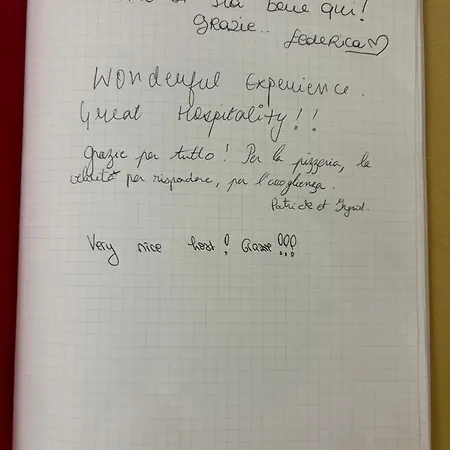 si sta bene qui!
Grazie..
Federica
Wonderful Experience.
Great Hospitality!!
Grazie per tutto! Per la pizzeria, la
velocità per rispondere, per l'accoglienza.
Patrick et Ingrid.
Very nice host! Grazie!!!